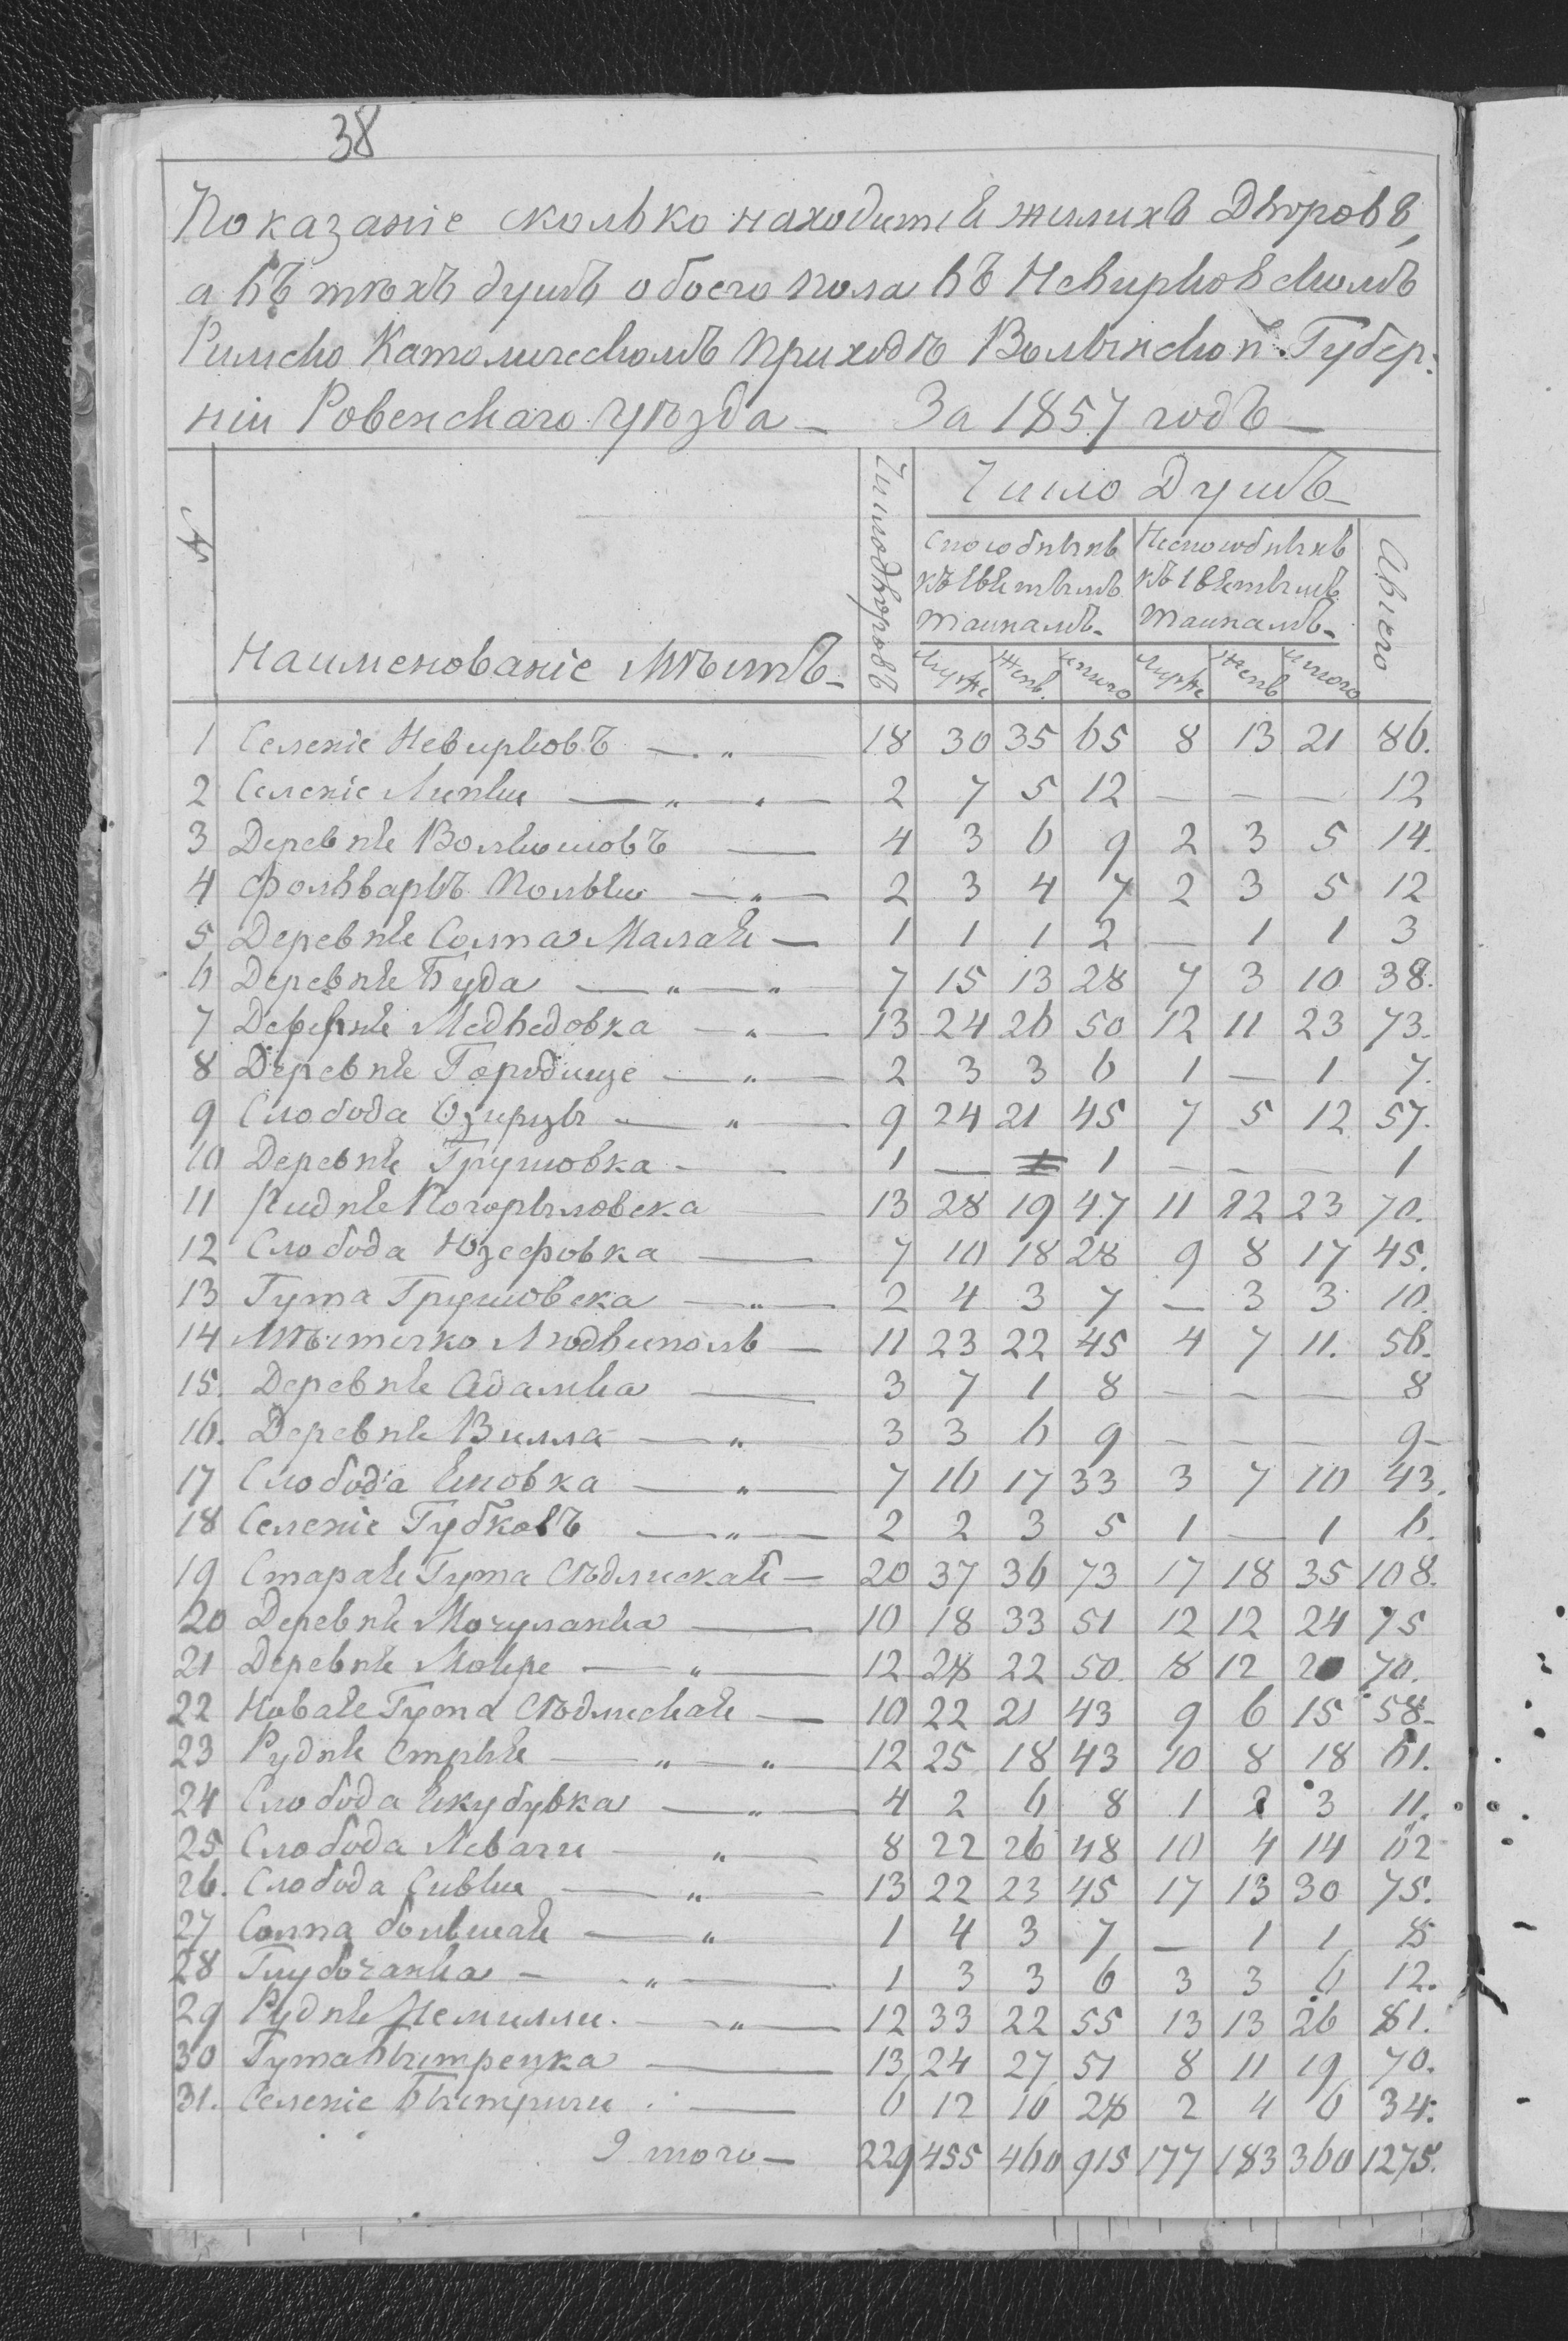 38
Показаніе сколько находится жилихъ Дворовъ,
а въ тѣхъ душъ обоего пола въ Невирковскомъ
Римско Католическомъ приходѣ Волынской Губер-
ніи Ровенскаго Уѣзда — За 1857 годъ —
№ Наименованіе Мѣстъ — Число дворовъ Число Душъ — А всего
Способныхъ къ Святымъ Тайнамъ — Неспособныхъ къ Святымъ Тайнамъ —
Мужс Женъ. Итого Мужс Женъ Итого
1 Селеніе Невирковъ — „ — 18 30 35 65 8 13 21 86.
2 Селеніе Липки — „ — „ — 2 7 5 12 — — — 12
3 Деревня Волкошовъ — 4 3 6 9 2 3 5 14.
4 Фольваркъ Польки — „ — 2 3 4 7 2 3 5 12
5 Деревня Солпа Малая — 1 1 1 2 — 1 1 3
6 Деревня Буда — „ — „ 7 15 13 28 7 3 10 38.
7 Деревня Медведовка — „ — 13 24 26 50 12 11 23 73.
8 Деревня Городище — „ — 2 3 3 6 1 — 1 7.
9 Слобода Озирцы — „ — 9 24 21 45 7 5 12 57.
10 Деревня Грушовка — — 1 — 1 1 — — — 1
11 Рудня Погорыловска — 13 28 19 47 11 12 23 70.
12 Слобода Юзефовка — 7 10 18 28 9 8 17 45.
13 Гута Грушовска — „ — 2 4 3 7 — 3 3 10.
14 Мѣстечко Людвиполь — 11 23 22 45 4 7 11. 56.
15. Деревня Адамка — 3 7 1 8 — — — 8
16. Деревня Вилля — „ — 3 3 6 9 — — — 9 —
17 Слобода Яновка — „ — 7 16 17 33 3 7 10 43.
18 Селеніе Губковъ — „ — 2 2 3 5 1 — 1 6.
19 Старая Гута Сѣдлиская — 20 37 36 73 17 18 35 108.
20 Деревня Мочулянка — 10 18 33 51 12 12 24 75
21 Деревня Мокре — „ — 12 28 22 50. 8 12 20 70.
22 Новая Гута Сѣдлиская — 10 22 21 43 9 6 15 58.
23 Рудня Стрыя — „ — „ 12 25 18 43 10 8 18 61.
24 Слобода Якубувка — „ — 4 2 6 8 1 2 3 11.
25 Слобода Левачи — „ — 8 22 26 48 10 4 14 62
26. Слобода Сивки — „ — 13 22 23 45 17 13 30 75.
27 Солпа большая — „ 1 4 3 7 — 1 1 8
28 Глубочанка — „ — 1 3 3 6 3 3 6 12.
29 Рудня Немилли. — „ — 12 33 22 55 13 13 26 81.
30 Гута Быстрецка — 13 24 27 51 8 11 19 70.
31. Селеніе Быстричи — 6 12 16 28 2 4 6 34.
Итого — 229 455 460 915 177 183 360 1275.